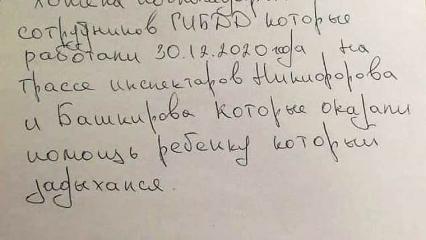 сотрудников ГИБДД которые
работали 30.12.2020 года на
трассе инспектаров Никифорова
и Башкирова которые оказали
помощь ребенку который
задыхался.